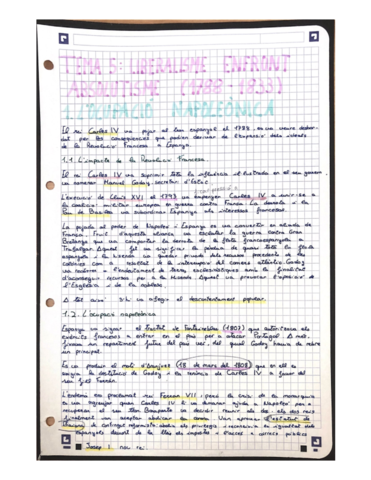 TEMA 5: LIBERALISME ENFRONT
ABSOLUTISME (1788-1833)
1. L'OCUPACIÓ NAPOLEÒNICA
El rei Carles IV va pujar al tron espanyol el 1788, en un clima
per les conseqüències que podien derivar de l'expansió dels ideals
de la Revolució Francesa a Espanya.
1.1. L'impacte de la Revolució Francesa.
El rei Carles IV va suprimir tota la influència il·lustrada en el seu govern
va nomenar Manuel Godoy secretari d'Estat.
L'execució de Lluís XVI el 1793 va empènyer Carles IV a unir-se a
la coalició militar europea en guerra contra França. La derrota a la
Pau de Basilea va subordinar Espanya als interessos francesos.
La pujada al poder de Napoleó i Espanya es va convertir en aliada de
França. Fruit d'aquesta aliança va esclatar la guerra contra Gran
Bretanya que va comportar la derrota de la flota francoespanyola a
Trafalgar. Aquest fet va significar la pèrdua de quasi tota la flota
espanyola i la hisenda va quedar privada dels recursos procedents de les
colònies com a resultat de la interrupció del comerç atlàntic. Godoy
va recórrer a l'endeutament de terres eclesiàstiques amb la finalitat
d'aconseguir recursos per a la Hisenda. Aquest va provocar l'oposició de
l'Església i de la noblesa.
A tot això si va afegir el descontentament popular.
1.2. L'ocupació napoleònica
Espanya va signar el Tractat de Fontainebleau (1807) que autoritzava els
exèrcits francesos a entrar en el país per a atacar Portugal. A més,
fixava un repartiment futur del país veí, del qual Godoy hauria de rebre
un principat.
Es va produir el motí d'Aranjuez (18 de març del 1808) que en ell es
exigia la destitució de Godoy i la renúncia de Carles IV a favor del
seu fill Ferran.
L'endemà es proclamat rei Ferran VII, però la crisi de la monarquia
es va agreujar quan Carles IV li va demanar ajuda a Napoleó per a
recuperar el tron. Bonaparte va decidir reunir als dos. els dos reis
van acceptar abdicar la corona. Van aprovar l'estatut de
de contingut reformista: abolia els privilegis i reconeixia la igualtat dels
espanyols davant de la llei, els impostos i l'accés a càrrecs públics
Josep I nou rei